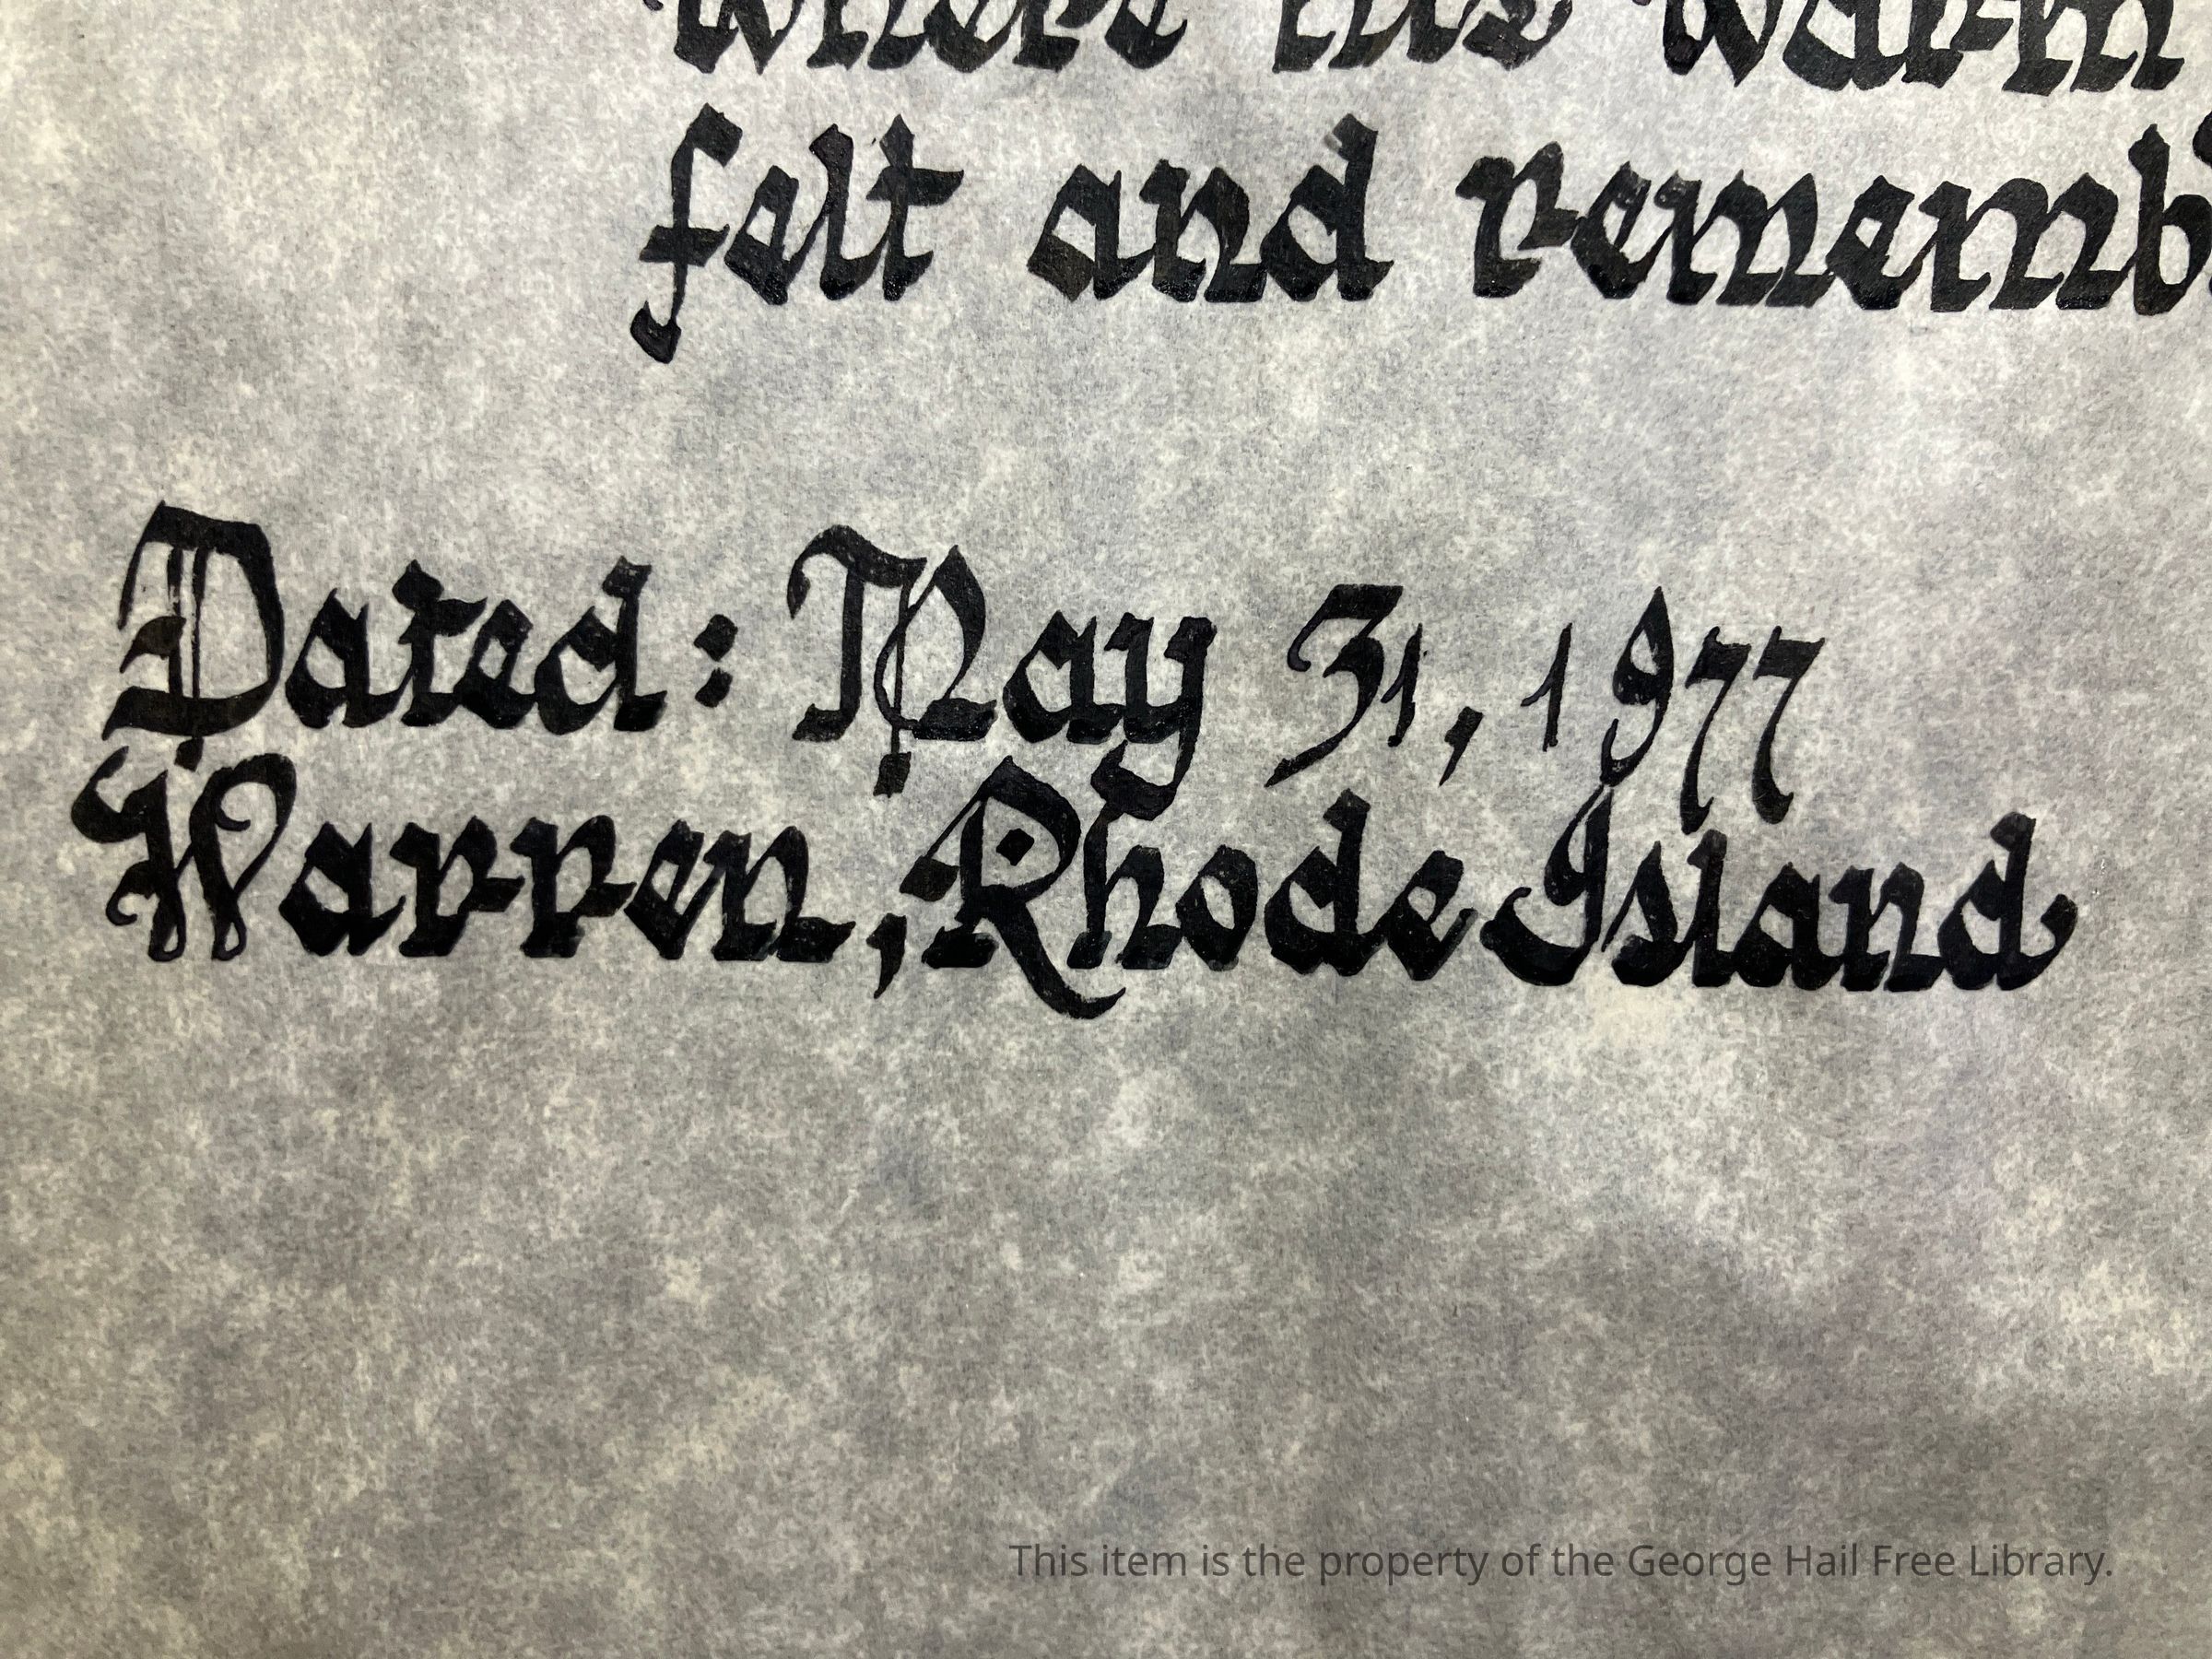 where his warm
felt and rememb
Dated: May 31, 1977
Warren, Rhode Island
This item is the property of the George Hail Free Library.